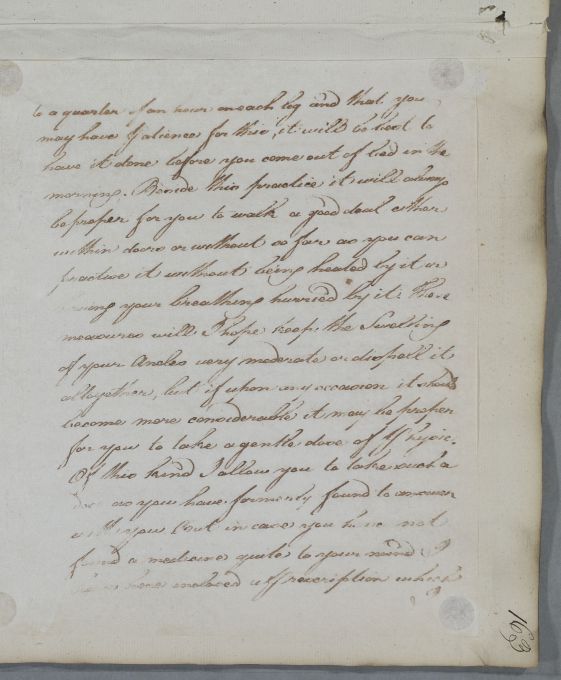 to a quarter of an hour on each leg and that you
may have patience for this, it will be best to
have it done before you come out of bed in the
morning. Beside this practice it will always
be proper for you to walk a good deal either
within doors or without so far as you can
practise it without being heated by it or
your breathing hurried by it: These
measures will I hope keep the Swelling
of your Ancles very moderate or dispell it
altogether, but if upon any occasion it should
become more considerable it may be proper
for you to take a gentle dose of Physic.
Of this kind I allow you to take such a
as you have formerly found to answer
with you but in case you have not
found a medicine quite to your mind I
have here enclosed a Prescription which
163